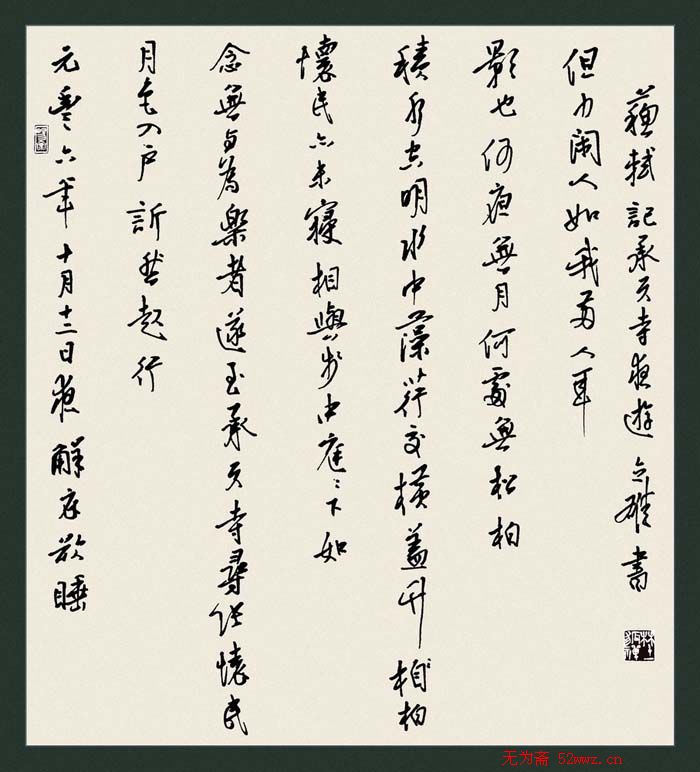 元豐六年十月十二日夜解衣欲睡
月色入戶訢然起行
念無與為樂者遂至承天寺尋張懷民
懷民亦未寢相與步中庭〻下如
積水空明水中藻荇交橫蓋竹相柏
影也何夜無月何處無松柏
但少閑人如我兩人耳
蘇軾記承天寺夜遊 書
无为斋 52wwz.cn